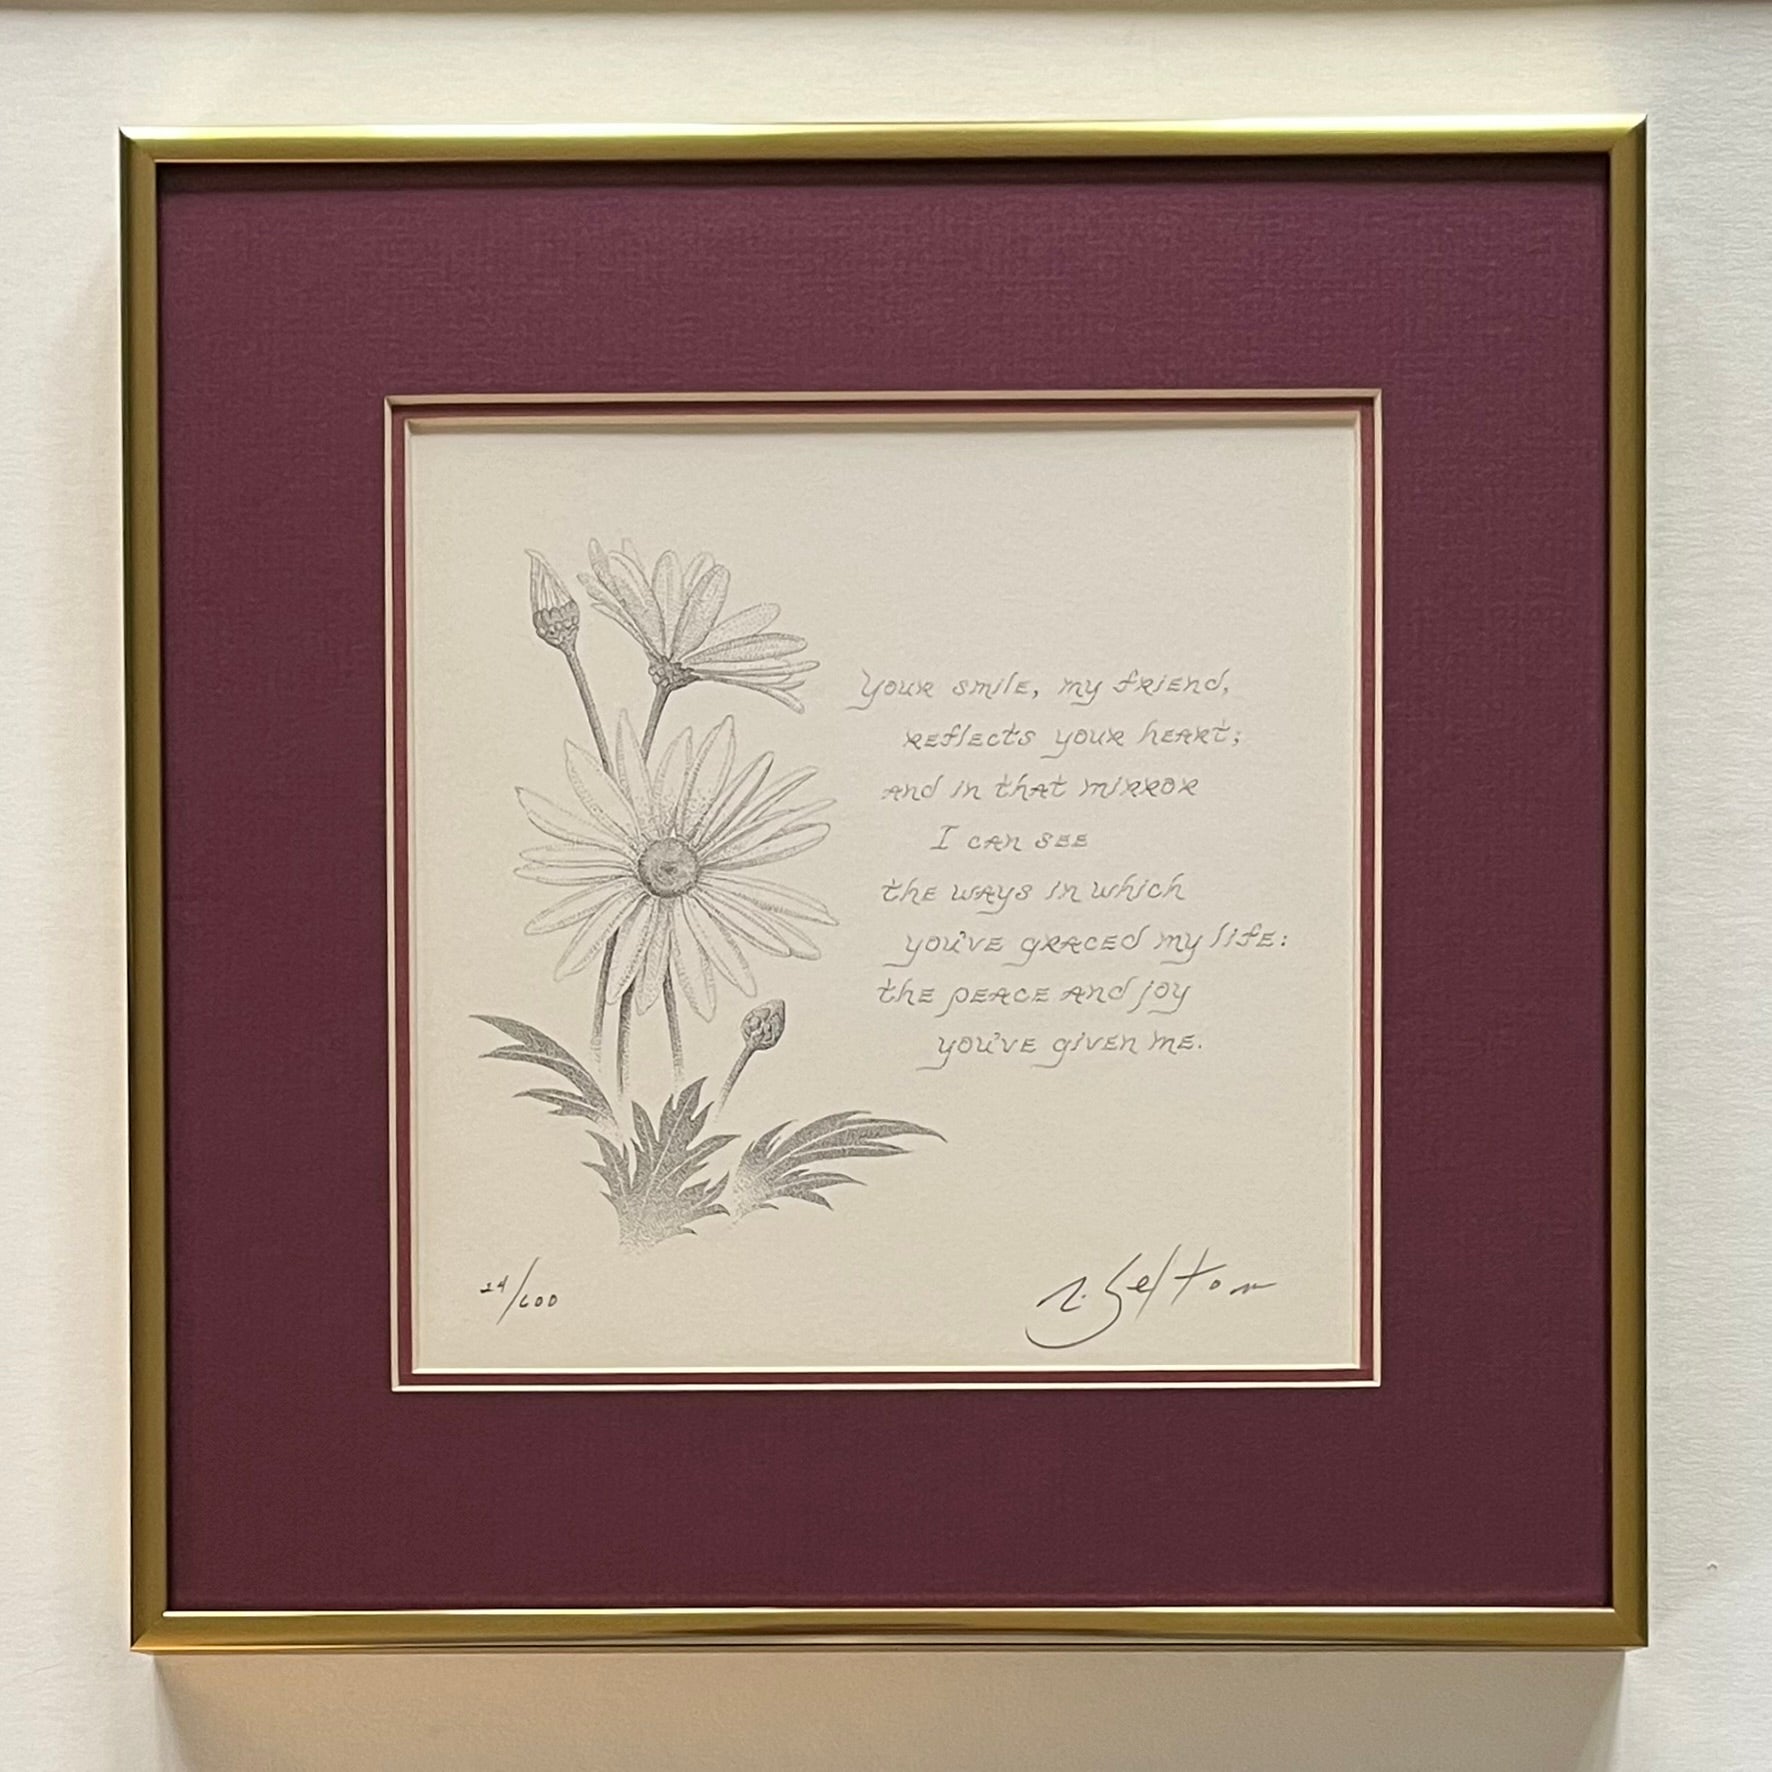 Your smile, my friend,
reflects your heart;
and in that mirror
I can see
the ways in which
you've graced my life:
the peace and joy
you've given me.
24/600